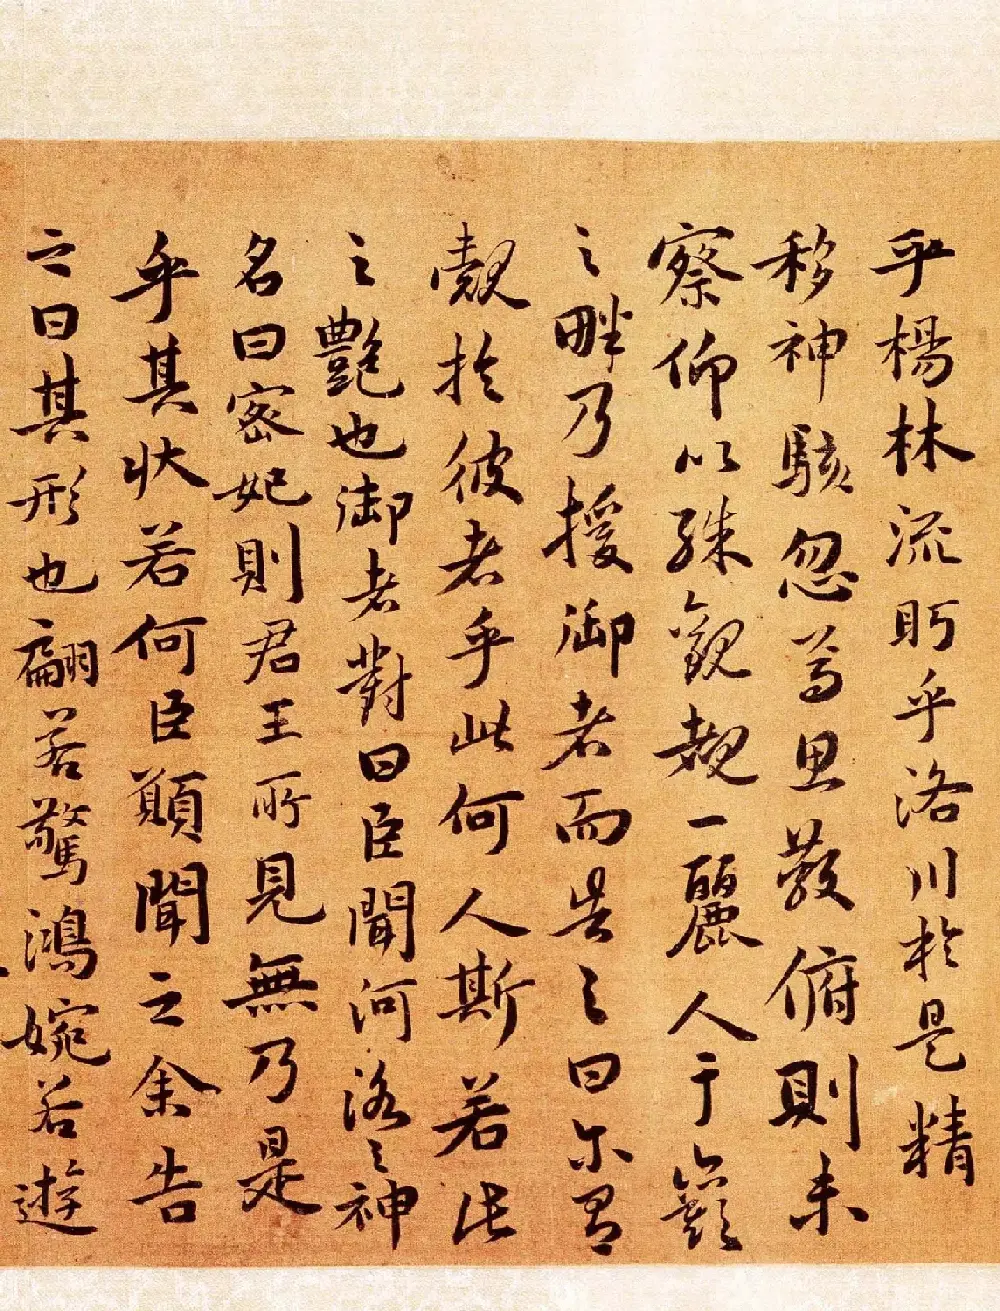 乎楊林流眄乎洛川於是精
移神駭忽焉思散俯則未
察仰以殊觀覩一麗人于巖
之畔乃援御者而告之曰尓有
覿於彼者乎此何人斯若此
之艷也御者對曰臣聞河洛之神
名曰宓妃則君王所見無乃是
乎其状若何臣願聞之余告
之曰其形也翩若驚鴻婉若遊